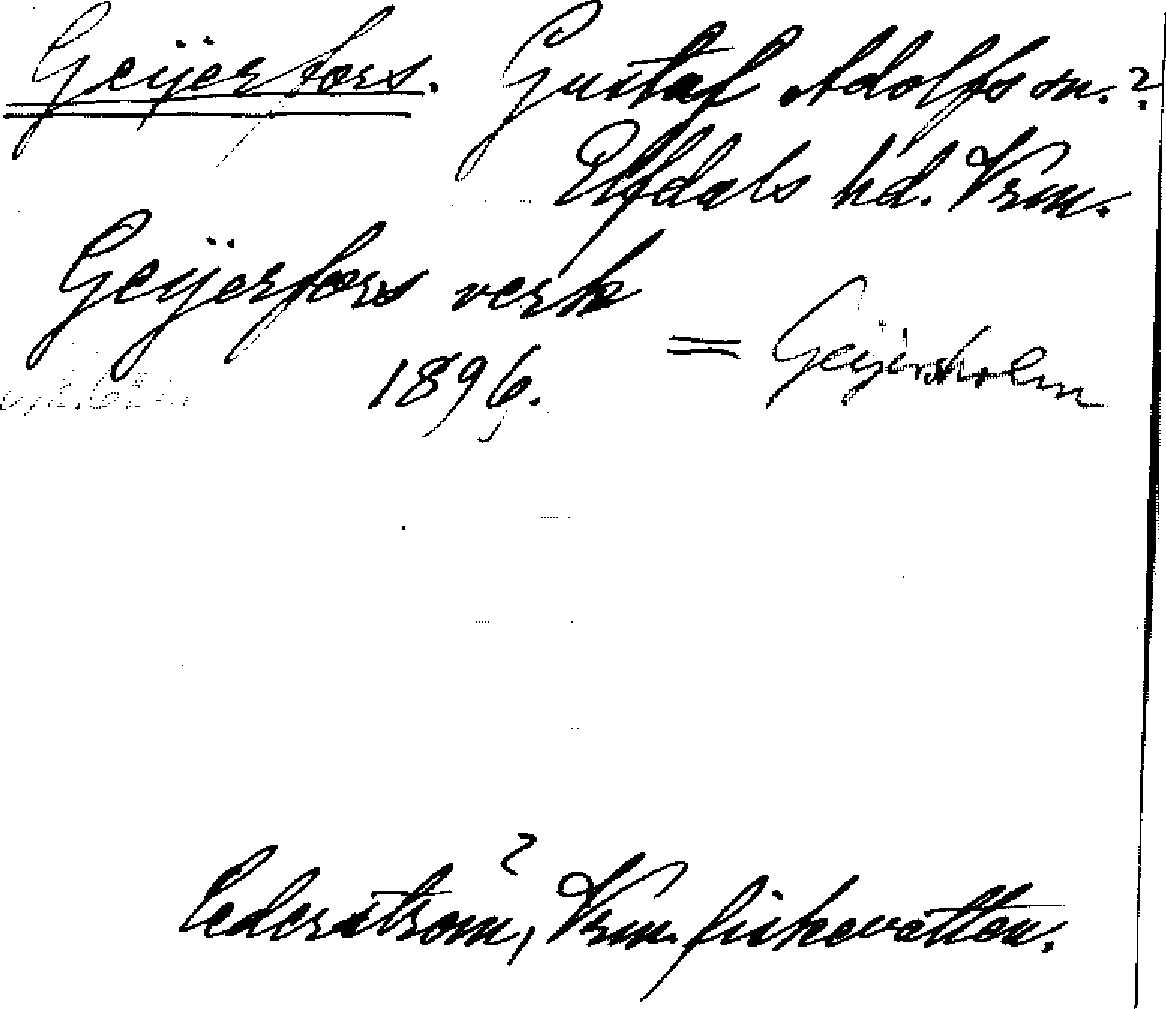 Geijersfors. Gustaf Adolfs sn.?
Elfdals hd. Vrm.
Geijersfors verk
= Geijersholm
1896.
Cederström, ? Vrm. fiskevatten.